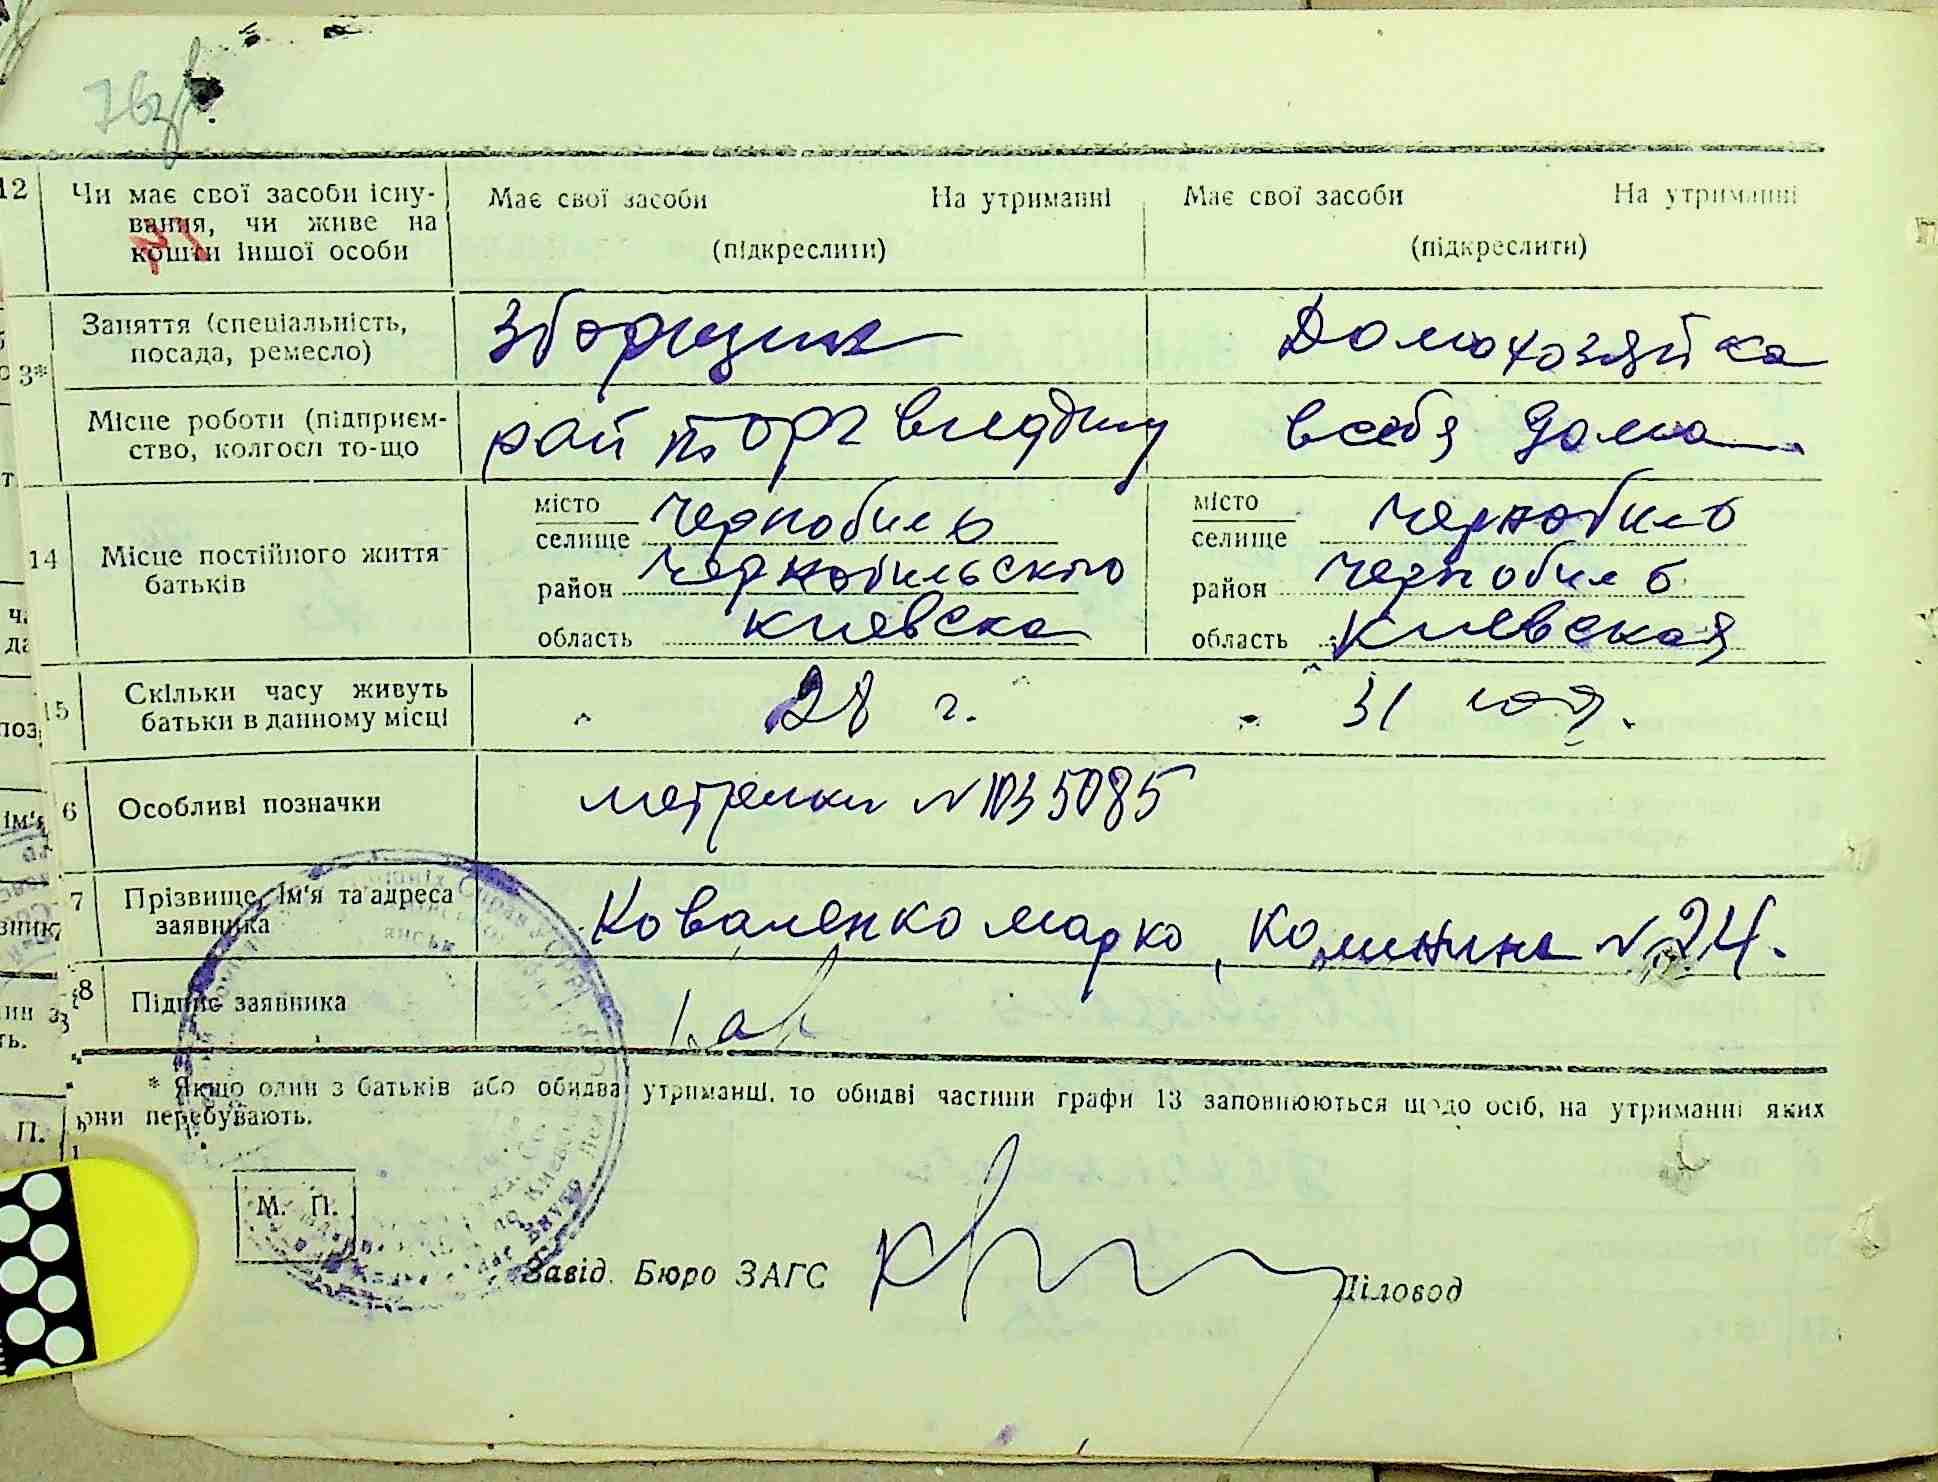 76
12 Чи має свої засоби існу- Має свої засоби На утриманні Має свої засоби На утриманні
вання, чи живе на
кошти іншої особи (підкреслити) (підкреслити)
Заняття (спеціальність, Зборщик Домохозяйка
посада, ремесло)
3*
Місце роботи (підприєм- рай торг в себя дома
ство, колгосп то-що
14 Місце постійного життя батьків
місто Чернобиль місто Чернобиль
селище селище
район Чернобильского район Чернобиль
область Киевска область Киевская
15 Скільки часу живуть 28 г. 31 год.
батьки в данному місці
6 Особливі позначки метрики № 1035085
7 Прізвище, ім'я та адреса Коваленко Марко, № 24.
заявника
8 Підпис заявника
* Якщо один з батьків або обидва утриманці, то обидві частини графи 13 заповнюються щодо осіб, на утриманні яких
они перебувають.
М. П.
Завід. Бюро ЗАГС Діловод